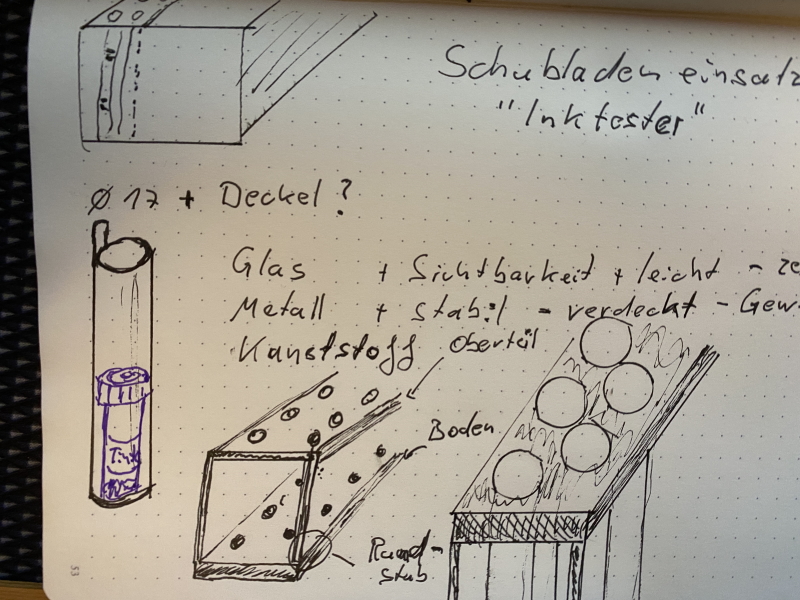 Schubladeneinsatz
"Inktester"
Ø 17 + Deckel?
Glas + Sichtbarkeit + leicht - ze
Metall + stabil - verdeckt - Gew
Kunststoff
Oberteil
Boden
Rund-
stab
Tinte
53